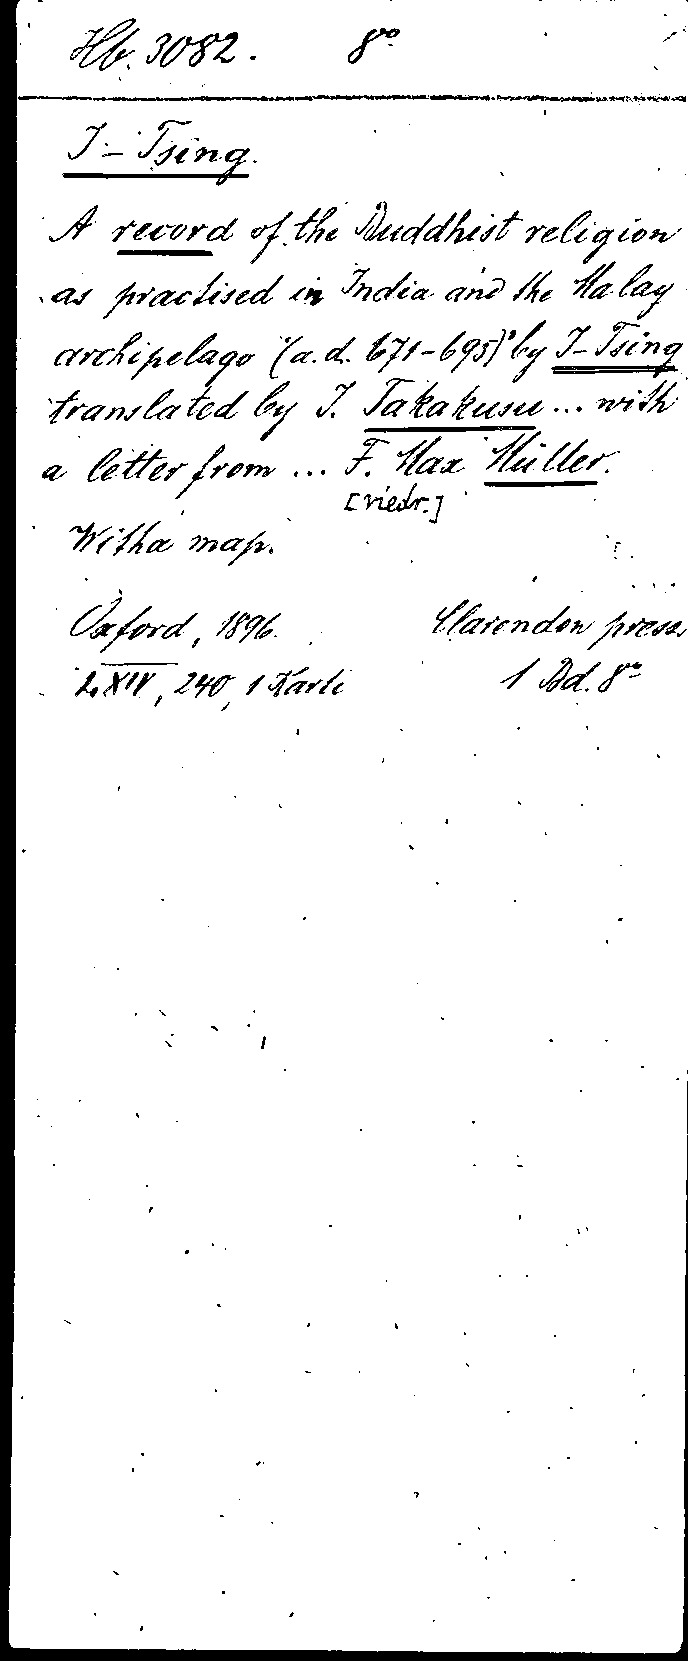 Hb. 3082. 8º
I-Tsing.
A record of the Buddhist religion
as practised in India and the Malay
archipelago (a.d. 671-695) by I-Tsing
translated by J. Takakusu... with
a letter from ... F. Max Müller.
[niedr.]
With a map.
Oxford, 1896. Clarendon press.
LXIV, 240, 1 Karte 1 Bd. 8º